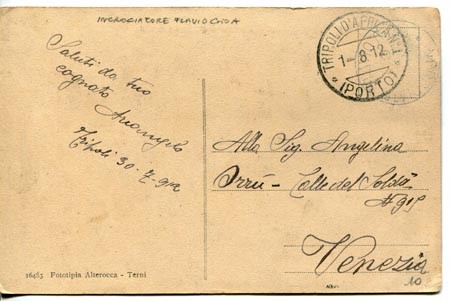 INCROCIATORE FLAVIO GIOIA
Saluti da tuo
cognato
Arcangelo
Tripoli 30-7-912
TRIPOLI D'AFRICA N.1
1-8.12
(PORTO)
Alla Sig. Angelina
Orrù - Calle del Soldà
Venezia
10
16483 Fototipia Alterocca - Terni